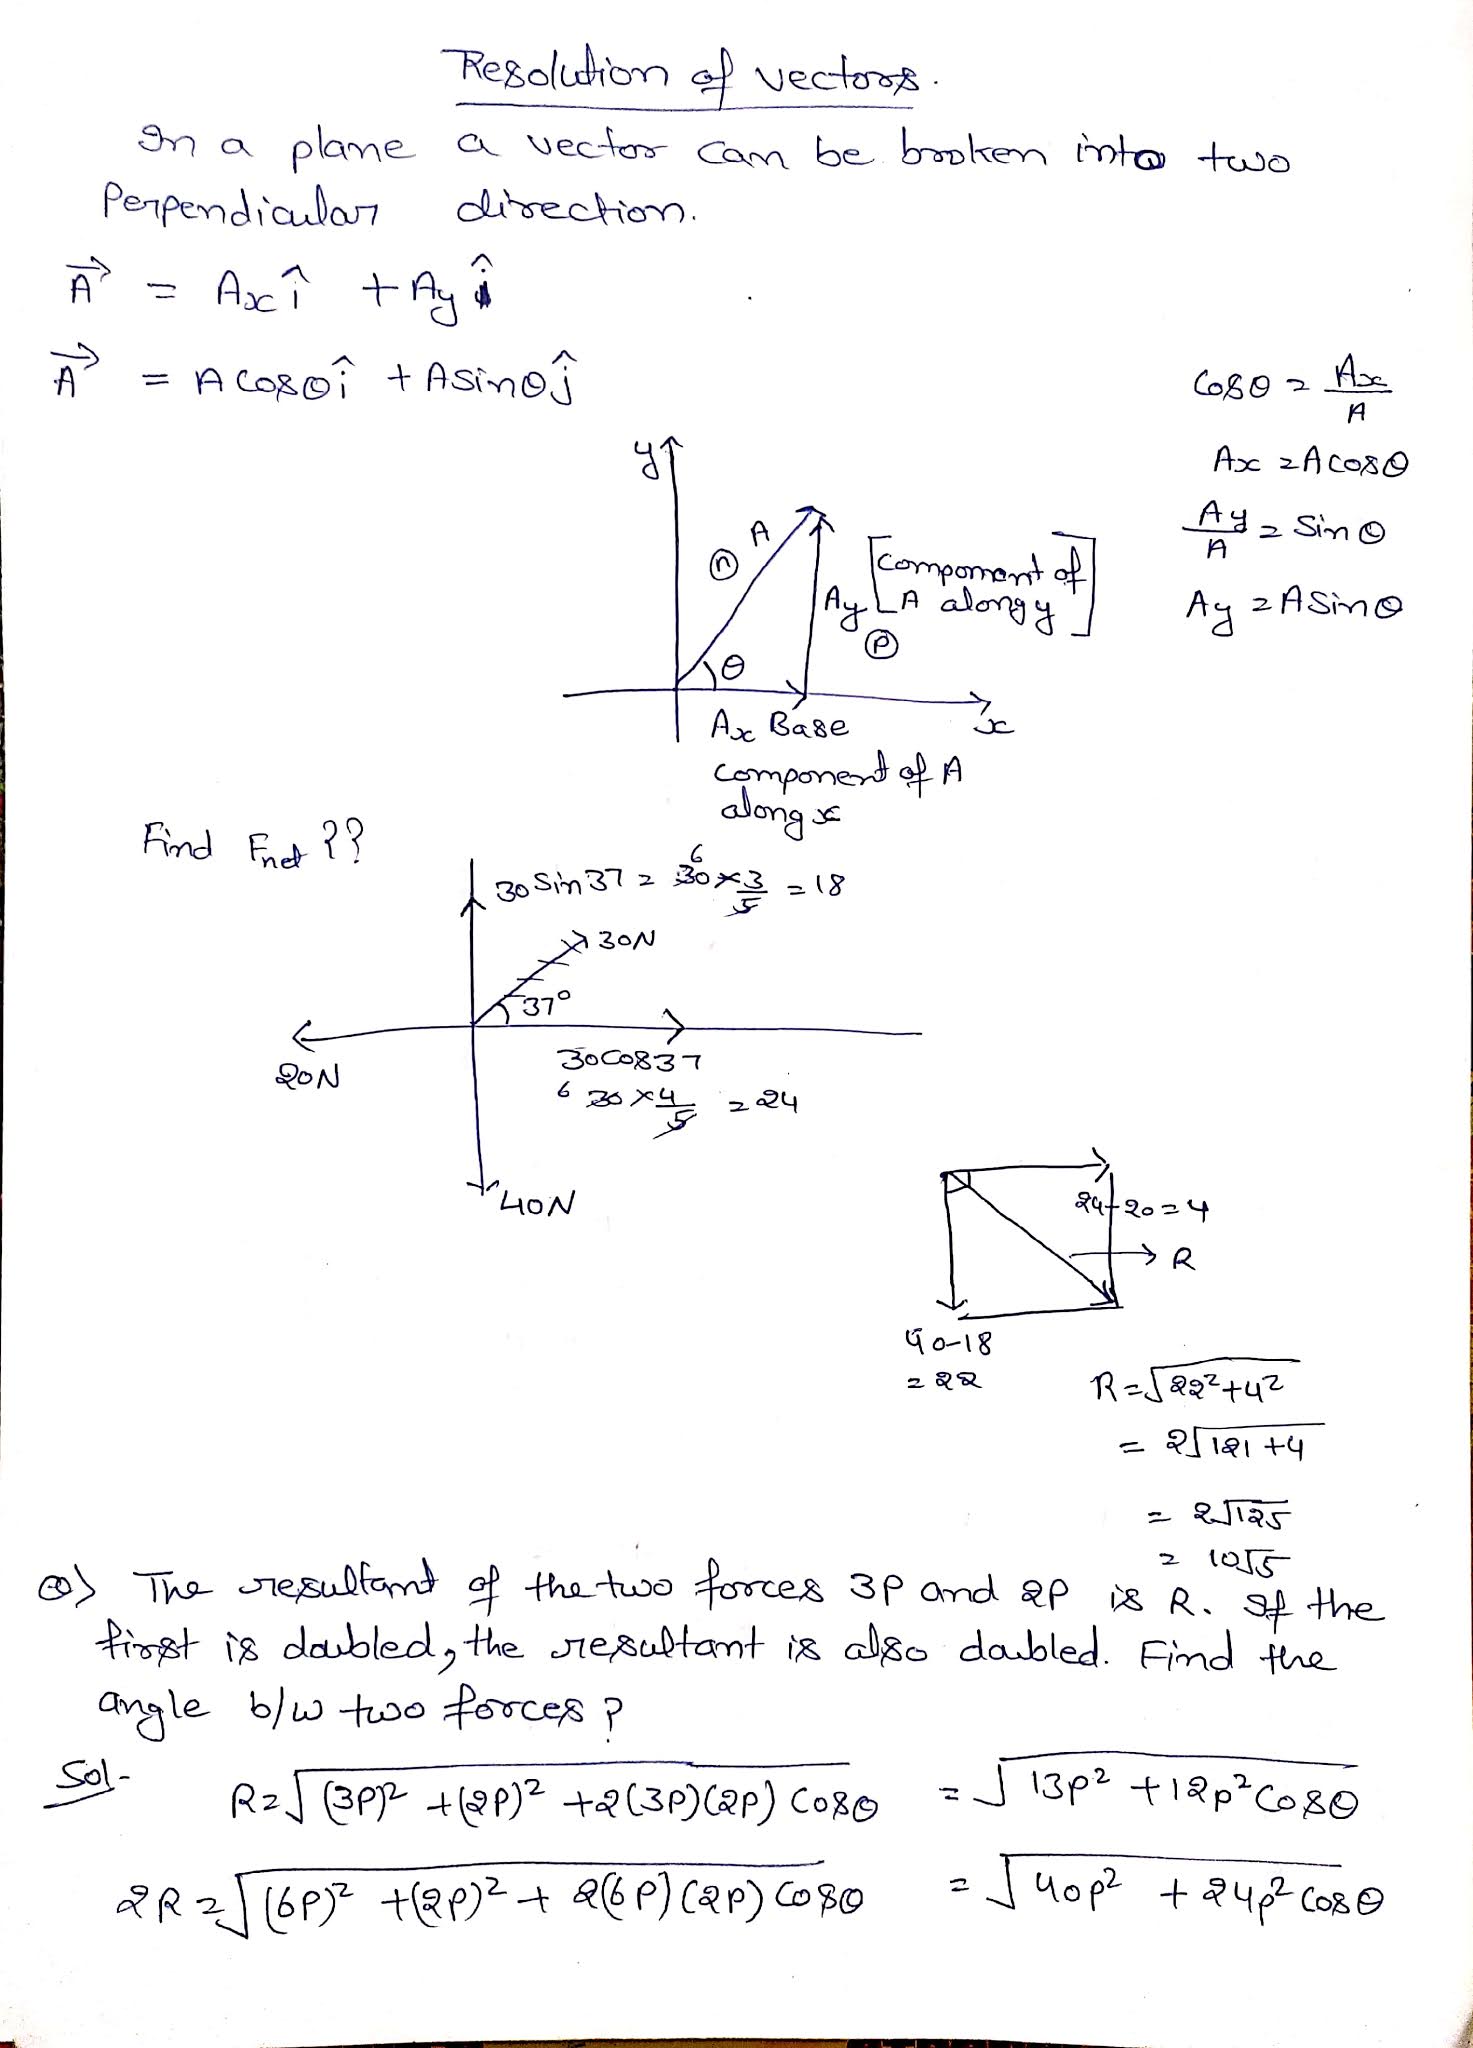 Resolution of vectors.
In a plane a vector can be broken into two
Perpendicular direction.
A⃗ = Axî + Ayĵ
A⃗ = A cosθî + Asinθĵ
cosθ = Ax/A
Ax = A cosθ
Ay/A = Sinθ
Ay = A Sinθ
y
A
θ
Ay [component of
A along y]
Ⓟ
Ax Base
x
component of A
along x
Find Fnet ??
30 Sin37 = 30×3/5 = 18
6
30N
37°
20N
30cos37
6 30×4/5 = 24
40N
24-20=4
R
40-18
=22
R=√22²+4²
= 2√121+4
= 2√125
= 10√5
Q) The resultant of the two forces 3P and 2P is R. If the
first is doubled, the resultant is also doubled. Find the
angle b/w two forces?
Sol-
R=√(3P)²+(2P)²+2(3P)(2P) Cosθ = √13P²+12P²Cosθ
2R=√(6P)²+(2P)²+2(6P)(2P) Cosθ = √40P²+24P²Cosθ